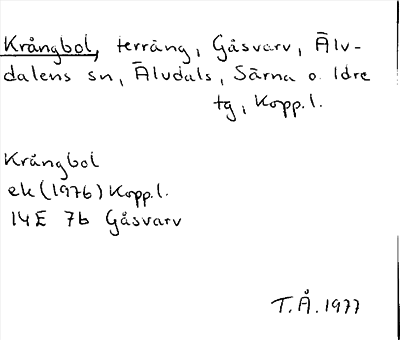 Krångbol, terräng, Gåsvarv, Älv-
dalens sn, Älvdals, Särna o. Idre
tg, Kopp.l.
Krångbol
ek (1976) Kopp.l.
14E 7b Gåsvarv
T.Å. 1977